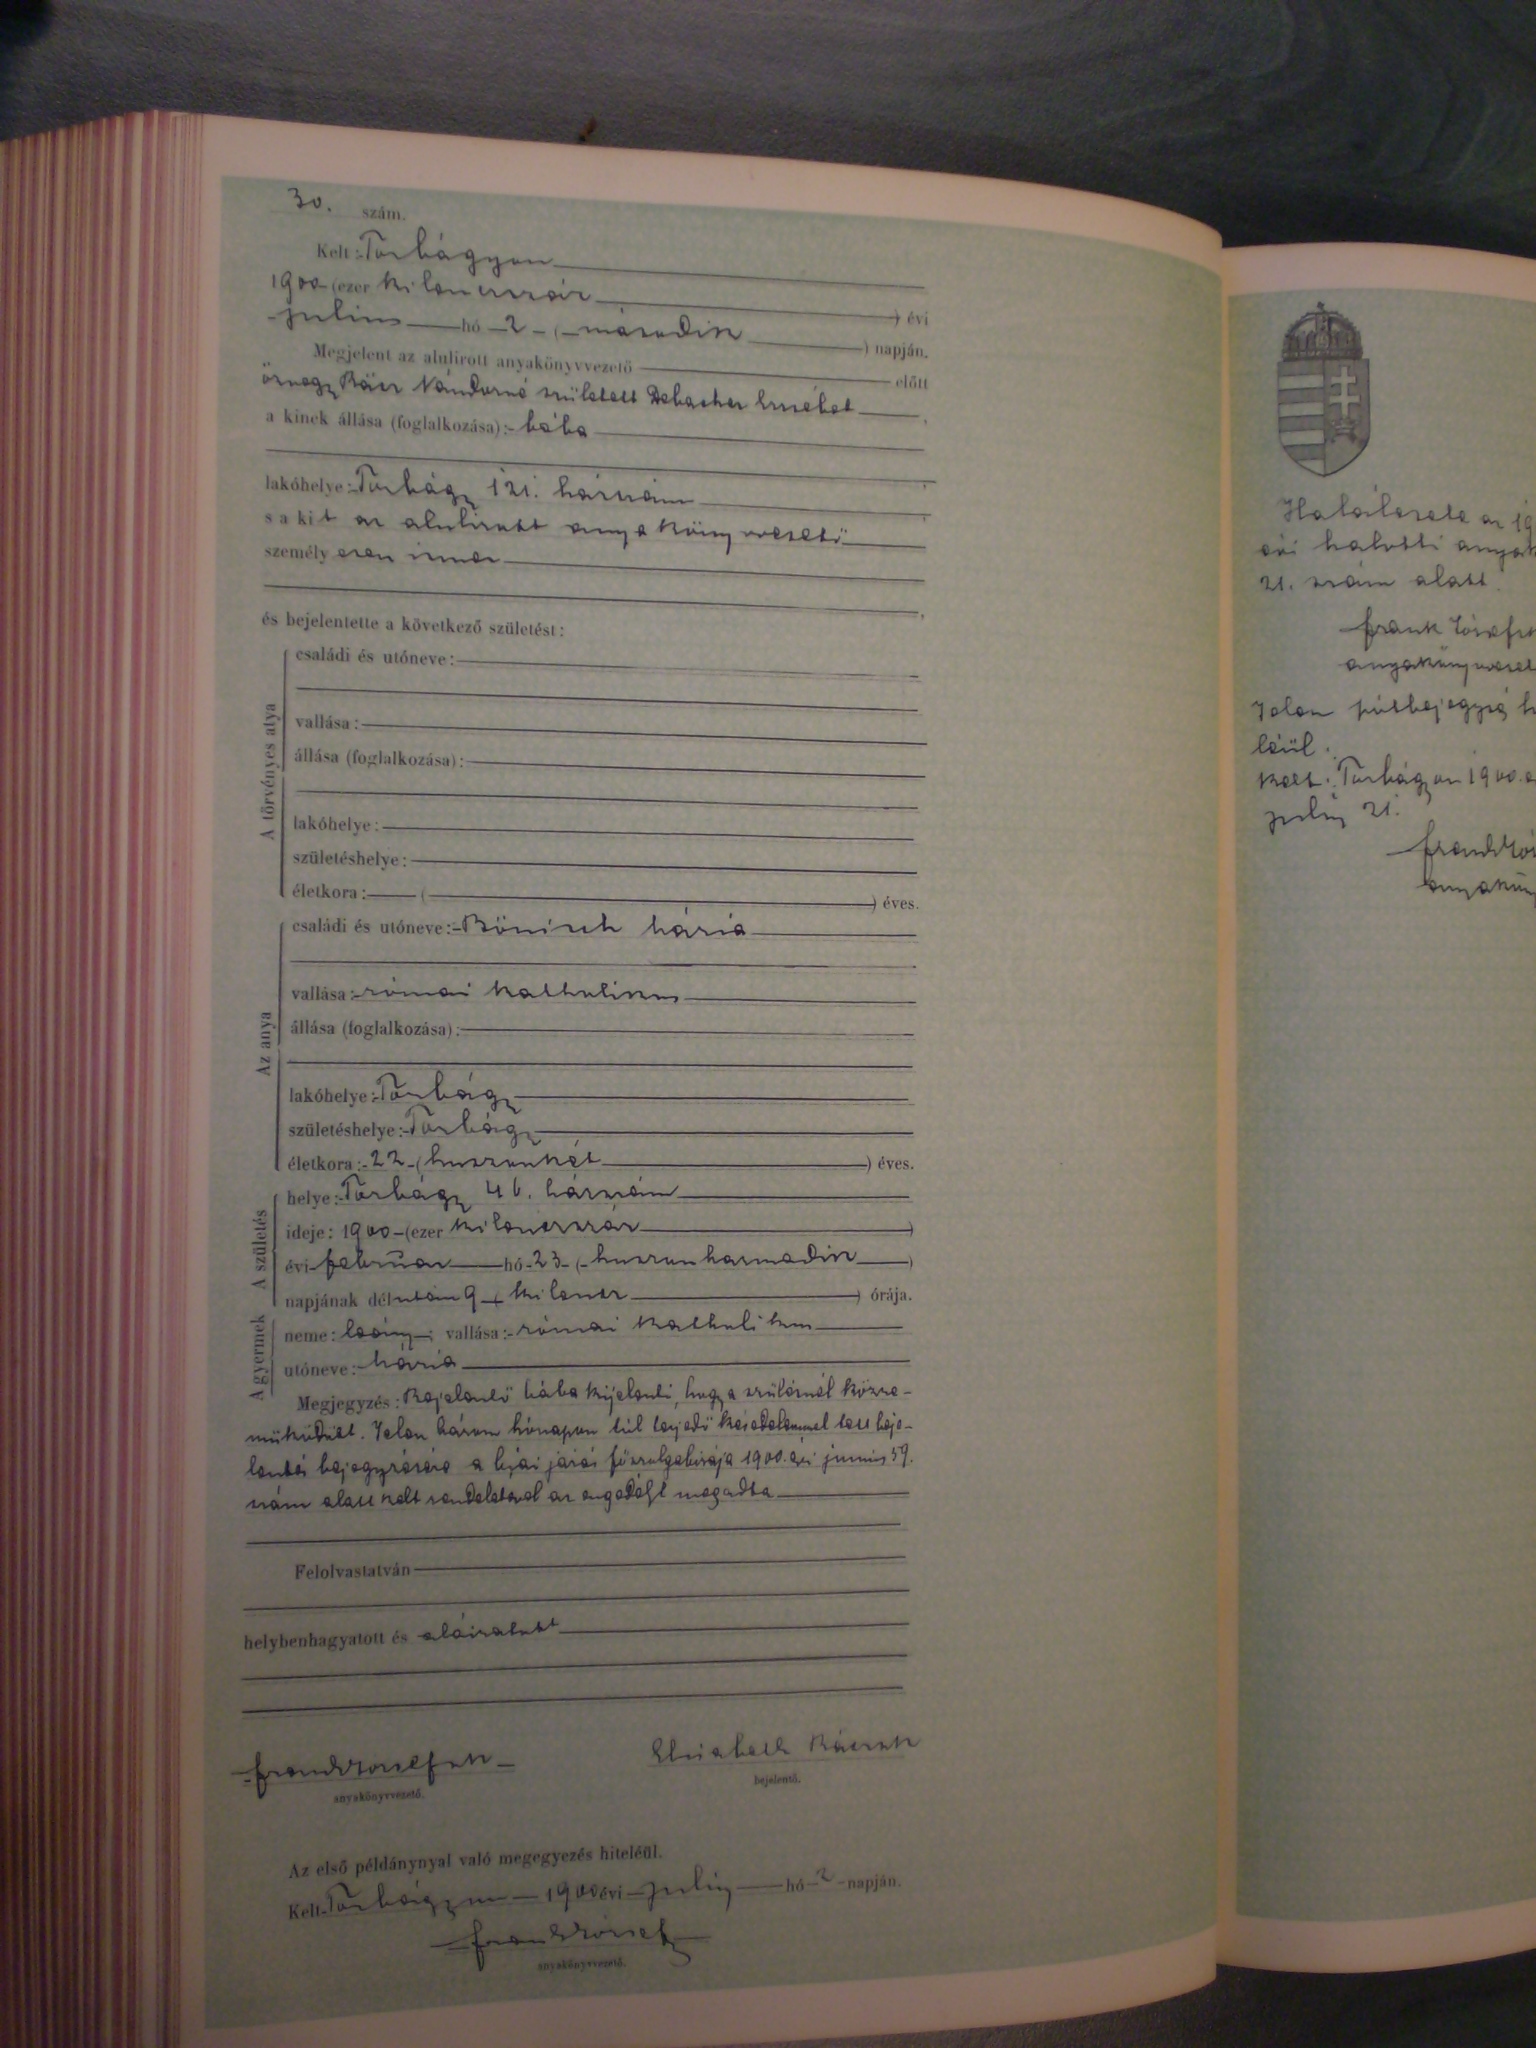 30. szám.
Kelt: Torbágyon
1900 (ezer kilencszáz) évi
julius hó 2 (második) napján.
Megjelent az alulirott anyakönyvvezető előtt
özvegy Nándorné született Erzsébet,
a kinek állása (foglalkozása): bába
lakóhelye: Torbágy 121. házszám,
s a kit az alulirott anyakönyvvezető
személyesen ismer,
és bejelentette a következő születést:
A törvényes atya
családi és utóneve:
vallása:
állása (foglalkozása):
lakóhelye:
születéshelye:
életkora: ( ) éves.
Az anya
családi és utóneve: Bönisch Mária
vallása: római katholikus
állása (foglalkozása):
lakóhelye: Torbágy
születéshelye: Torbágy
életkora: 22 (huszonkét) éves.
A születés
helye: Torbágy 46. házszám
ideje: 1900 (ezer kilencszáz)
évi február hó 23 (huszonharmadik)
napjának délután 9 (kilencz) órája.
A gyermek
neme: leány; vallása: római katholikus
utóneve: Mária
Megjegyzés: Bejelentő bába kijelenti, hogy a szülésnél közre-
müködött. Jelen három hónapon túl terjedő késedelemmel tett beje-
lentés bejegyzésére a bijai járás főszolgabirája 1900. évi junius
szám alatt kelt rendeletével az engedélyt megadta
Felolvastatván
helybenhagyatott és aláiratott
Frank József
anyakönyvvezető.
Elisabeth
bejelentő.
Az első példánynyal való megegyezés hiteléül.
Kelt Torbágyon 1900 évi julius hó 2 napján.
Frank József
anyakönyvvezető.
Halálesete az 19
évi halotti anyak
21. szám alatt.
Frank József
anyakönyvvezet
Jelen utóbejegyzés h
léül.
Kelt: Torbágyon 1900. é
julius 21.
Frank Jó
anyaköny